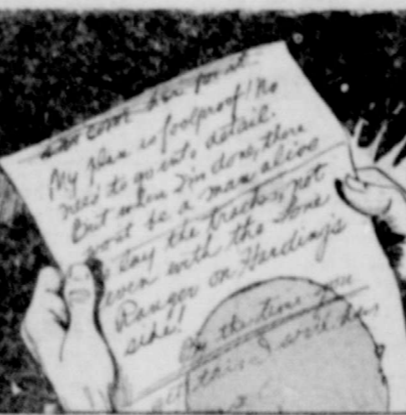 My plan is foolproof! No
need to go into detail.
But when I'm done, there
won't be a man alive
to lay the tracks, not
even with the Lone
Ranger on Harding's
side!!
By the time you
this, I will be